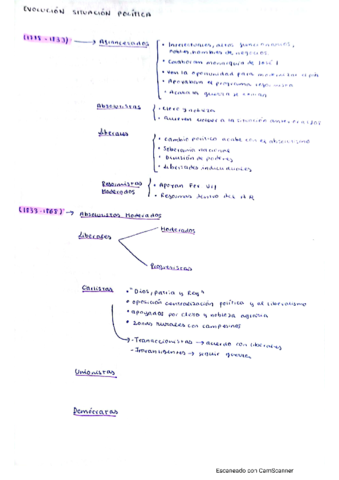 EVOLUCIÓN SITUACIÓN POLÍTICA
(1788-1833) → Afrancesados
• Intelectuales, altos funcionarios,
nobles, hombres de negocios
• Colaboran monarquía de José I
• Ven la oportunidad para modernizar
• Apoyaban el programa reformista
• Acaba la guerra →
Absolutistas
• Clero y nobleza
• Quieren volver a la situación
Liberales
• Cambio político acabe con el absolutismo
• Soberanía nacional
• División de poderes
• Libertades individuales
Reformistas Moderados
• Apoyan Fer VII
• Reformas dentro del
(1833-1868) → Absolutistas Moderados
Liberales
Moderados
Progresistas
Carlistas
• "Dios, patria y Rey"
• oposición centralización política y al liberalismo
• apoyados por clero y nobleza agraria
• zonas rurales con campesinos
- Transaccionistas → acuerdo con liberales
- Intransigentes → seguir guerra
Unionistas
Demócratas
Escaneado con CamScanner